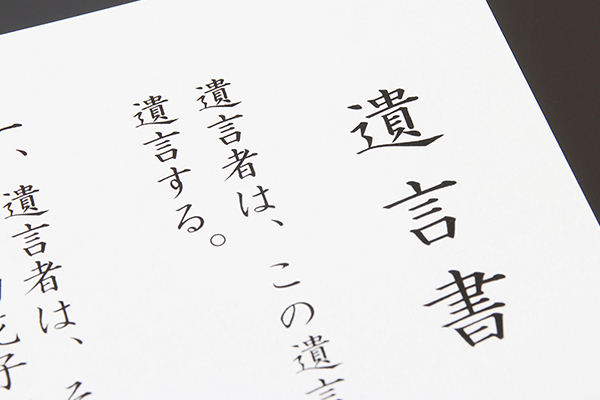 遺言書
遺言者は、この遺言
遺言する。
一、遺言者は、そ
花子